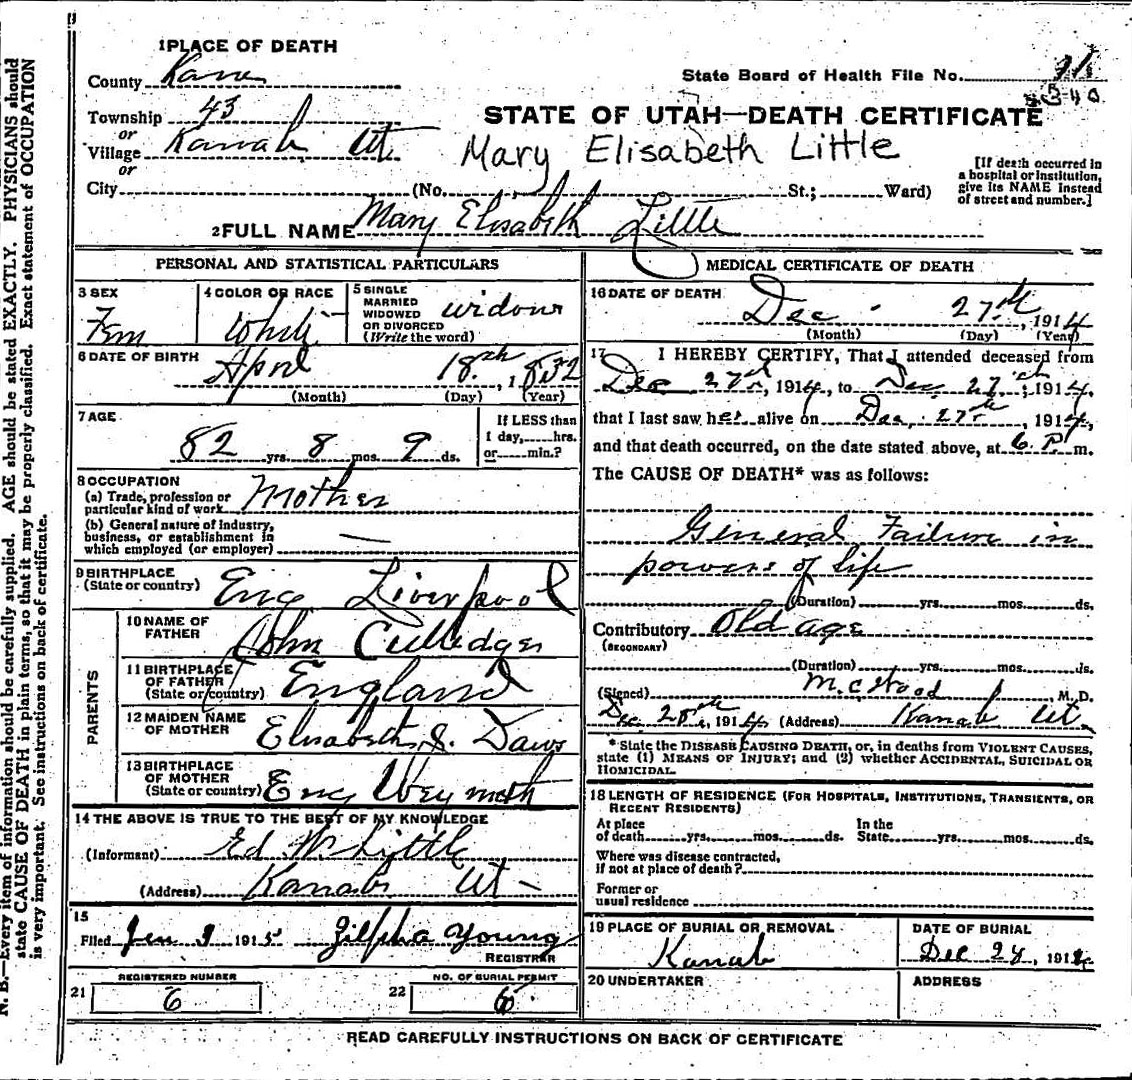 1 PLACE OF DEATH
County Kane
State Board of Health File No.
Township 43
or
Village Kanab Ut.
or
City (No. St.; Ward)
STATE OF UTAH—DEATH CERTIFICATE
Mary Elisabeth Little
[If death occurred in
a hospital or institution,
give its NAME instead
of street and number.]
2 FULL NAME Mary Elisabeth Little
PERSONAL AND STATISTICAL PARTICULARS
3 SEX
Fem
4 COLOR OR RACE
White
5 SINGLE
MARRIED
WIDOWED
OR DIVORCED
(Write the word)
widow
6 DATE OF BIRTH
April 18th, 1832
(Month) (Day) (Year)
7 AGE
82 yrs. 8 mos. 9 ds.
If LESS than
1 day, hrs.
or min.?
8 OCCUPATION
(a) Trade, profession or
particular kind of work Mother
(b) General nature of industry,
business, or establishment in
which employed (or employer)
9 BIRTHPLACE
(State or country) Eng Liverpool
PARENTS
10 NAME OF
FATHER John Culledger
11 BIRTHPLACE
OF FATHER
(State or country) England
12 MAIDEN NAME
OF MOTHER Elisabeth J. Daws
13 BIRTHPLACE
OF MOTHER
(State or country) Eng Weymoth
14 THE ABOVE IS TRUE TO THE BEST OF MY KNOWLEDGE
(Informant) Ed W Little
(Address) Kanab Ut
15
Filed Jan 9 1915 Zilpha Young
REGISTRAR
REGISTERED NUMBER
21 6
NO. OF BURIAL PERMIT
22 6
MEDICAL CERTIFICATE OF DEATH
16 DATE OF DEATH
Dec 27th, 1914
(Month) (Day) (Year)
17 I HEREBY CERTIFY, That I attended deceased from
Dec 27th, 1914, to Dec 27th, 1914,
that I last saw her alive on Dec, 27th, 1914,
and that death occurred, on the date stated above, at 6 P. m.
The CAUSE OF DEATH* was as follows:
General Failure in
powers of life
(Duration) yrs. mos. ds.
Contributory Old age
(SECONDARY)
(Duration) yrs. mos. ds.
(Signed) M. C Wood, M. D.
Dec 28th, 1914 (Address) Kanab Ut.
*State the DISEASE CAUSING DEATH, or, in deaths from VIOLENT CAUSES,
state (1) MEANS OF INJURY; and (2) whether ACCIDENTAL, SUICIDAL OR
HOMICIDAL.
18 LENGTH OF RESIDENCE (FOR HOSPITALS, INSTITUTIONS, TRANSIENTS, OR
RECENT RESIDENTS)
At place In the
of death yrs. mos. ds. State yrs. mos. ds.
Where was disease contracted,
if not at place of death?
Former or
usual residence
19 PLACE OF BURIAL OR REMOVAL
Kanab
DATE OF BURIAL
Dec 29, 1914
20 UNDERTAKER
ADDRESS
READ CAREFULLY INSTRUCTIONS ON BACK OF CERTIFICATE
N. B.—Every item of information should be carefully supplied. AGE should be stated EXACTLY. PHYSICIANS should
state CAUSE OF DEATH in plain terms, so that it may be properly classified. Exact statement of OCCUPATION
is very important. See instructions on back of certificate.